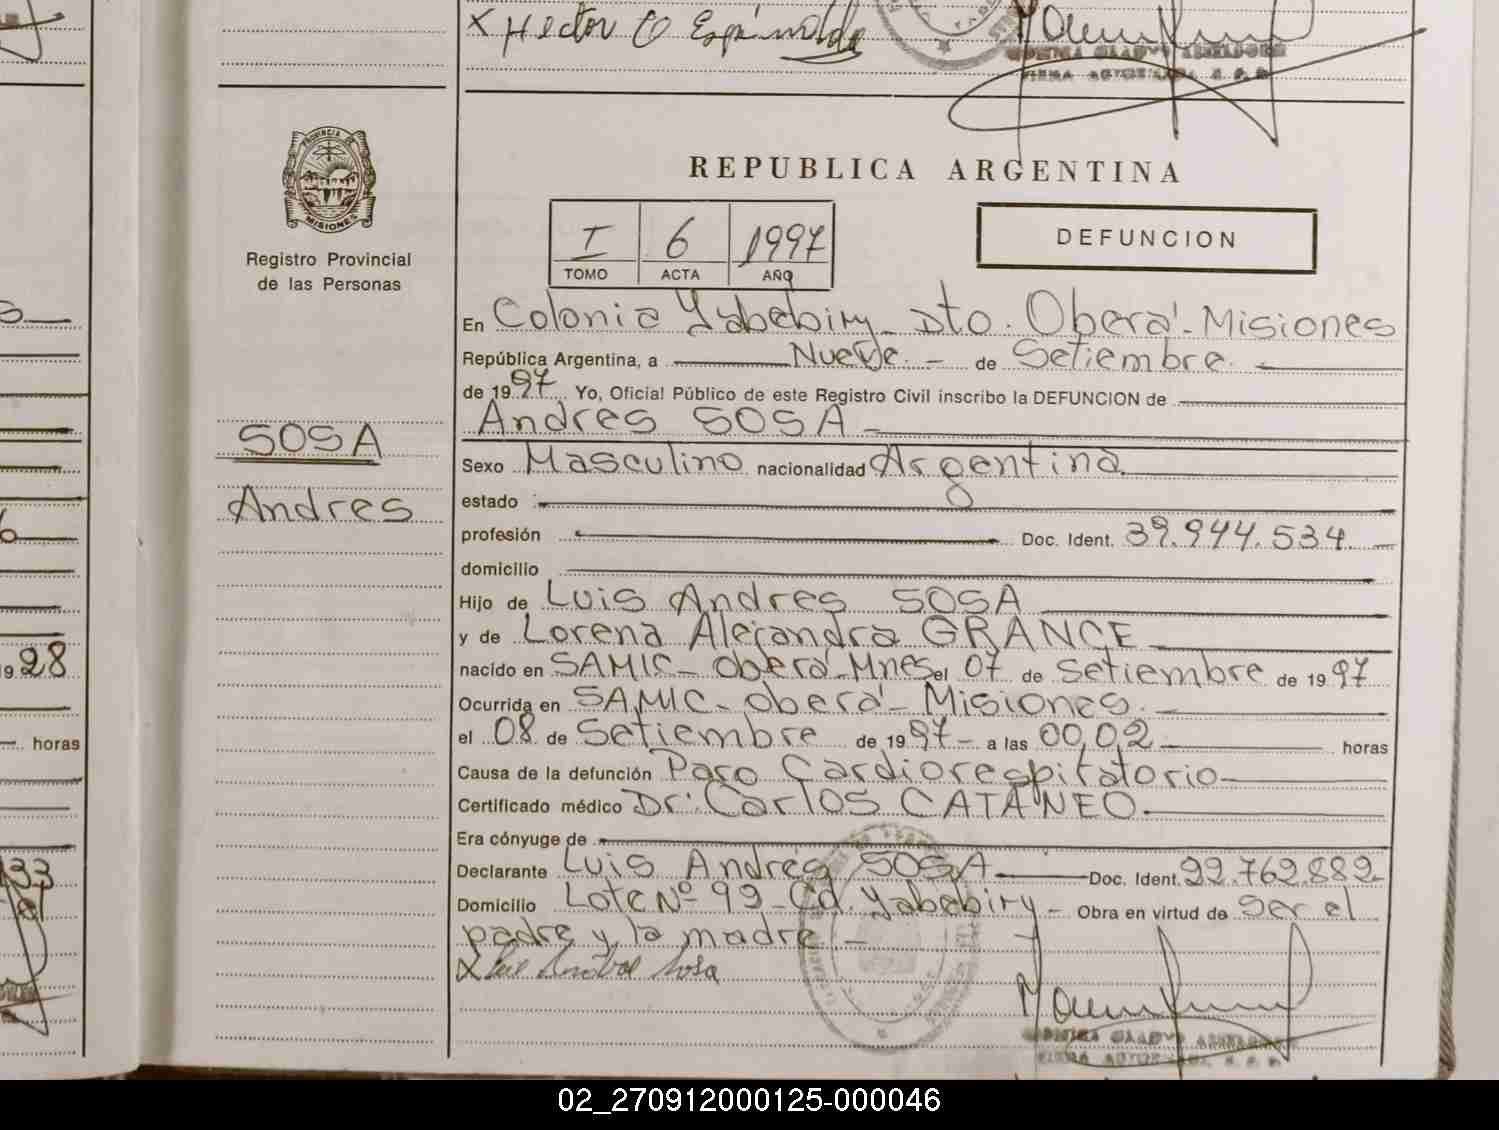 X Hector O Espinolde
REPUBLICA ARGENTINA
PROVINCIA DE
MISIONES
Registro Provincial
de las Personas
I 6 1997
TOMO ACTA AÑO
DEFUNCION
En Colonia Yabebiry - Dto. Oberá - Misiones
República Argentina, a Nueve - de Setiembre
de 1997 Yo, Oficial Público de este Registro Civil inscribo la DEFUNCION de
Andres SOSA
SOSA
Andres
Sexo Masculino nacionalidad Argentina
estado
profesión Doc. Ident. 39.944.534
domicilio
Hijo de Luis Andres SOSA
y de Lorena Alejandra GRANCE
nacido en SAMIC - Oberá - Mnes el 07 de Setiembre de 1997
Ocurrida en SAMIC - Oberá - Misiones
el 08 de Setiembre de 1997 - a las 00,02 horas
Causa de la defunción Paro Cardiorespiratorio
Certificado médico Dr. Carlos CATANEO
Era cónyuge de
Declarante Luis Andrés SOSA Doc. Ident. 22.762.882
Domicilio Lote Nº 99 - Cd. Yabebiry - Obra en virtud de Ser el
padre y la madre -
1928
horas
02_270912000125-000046